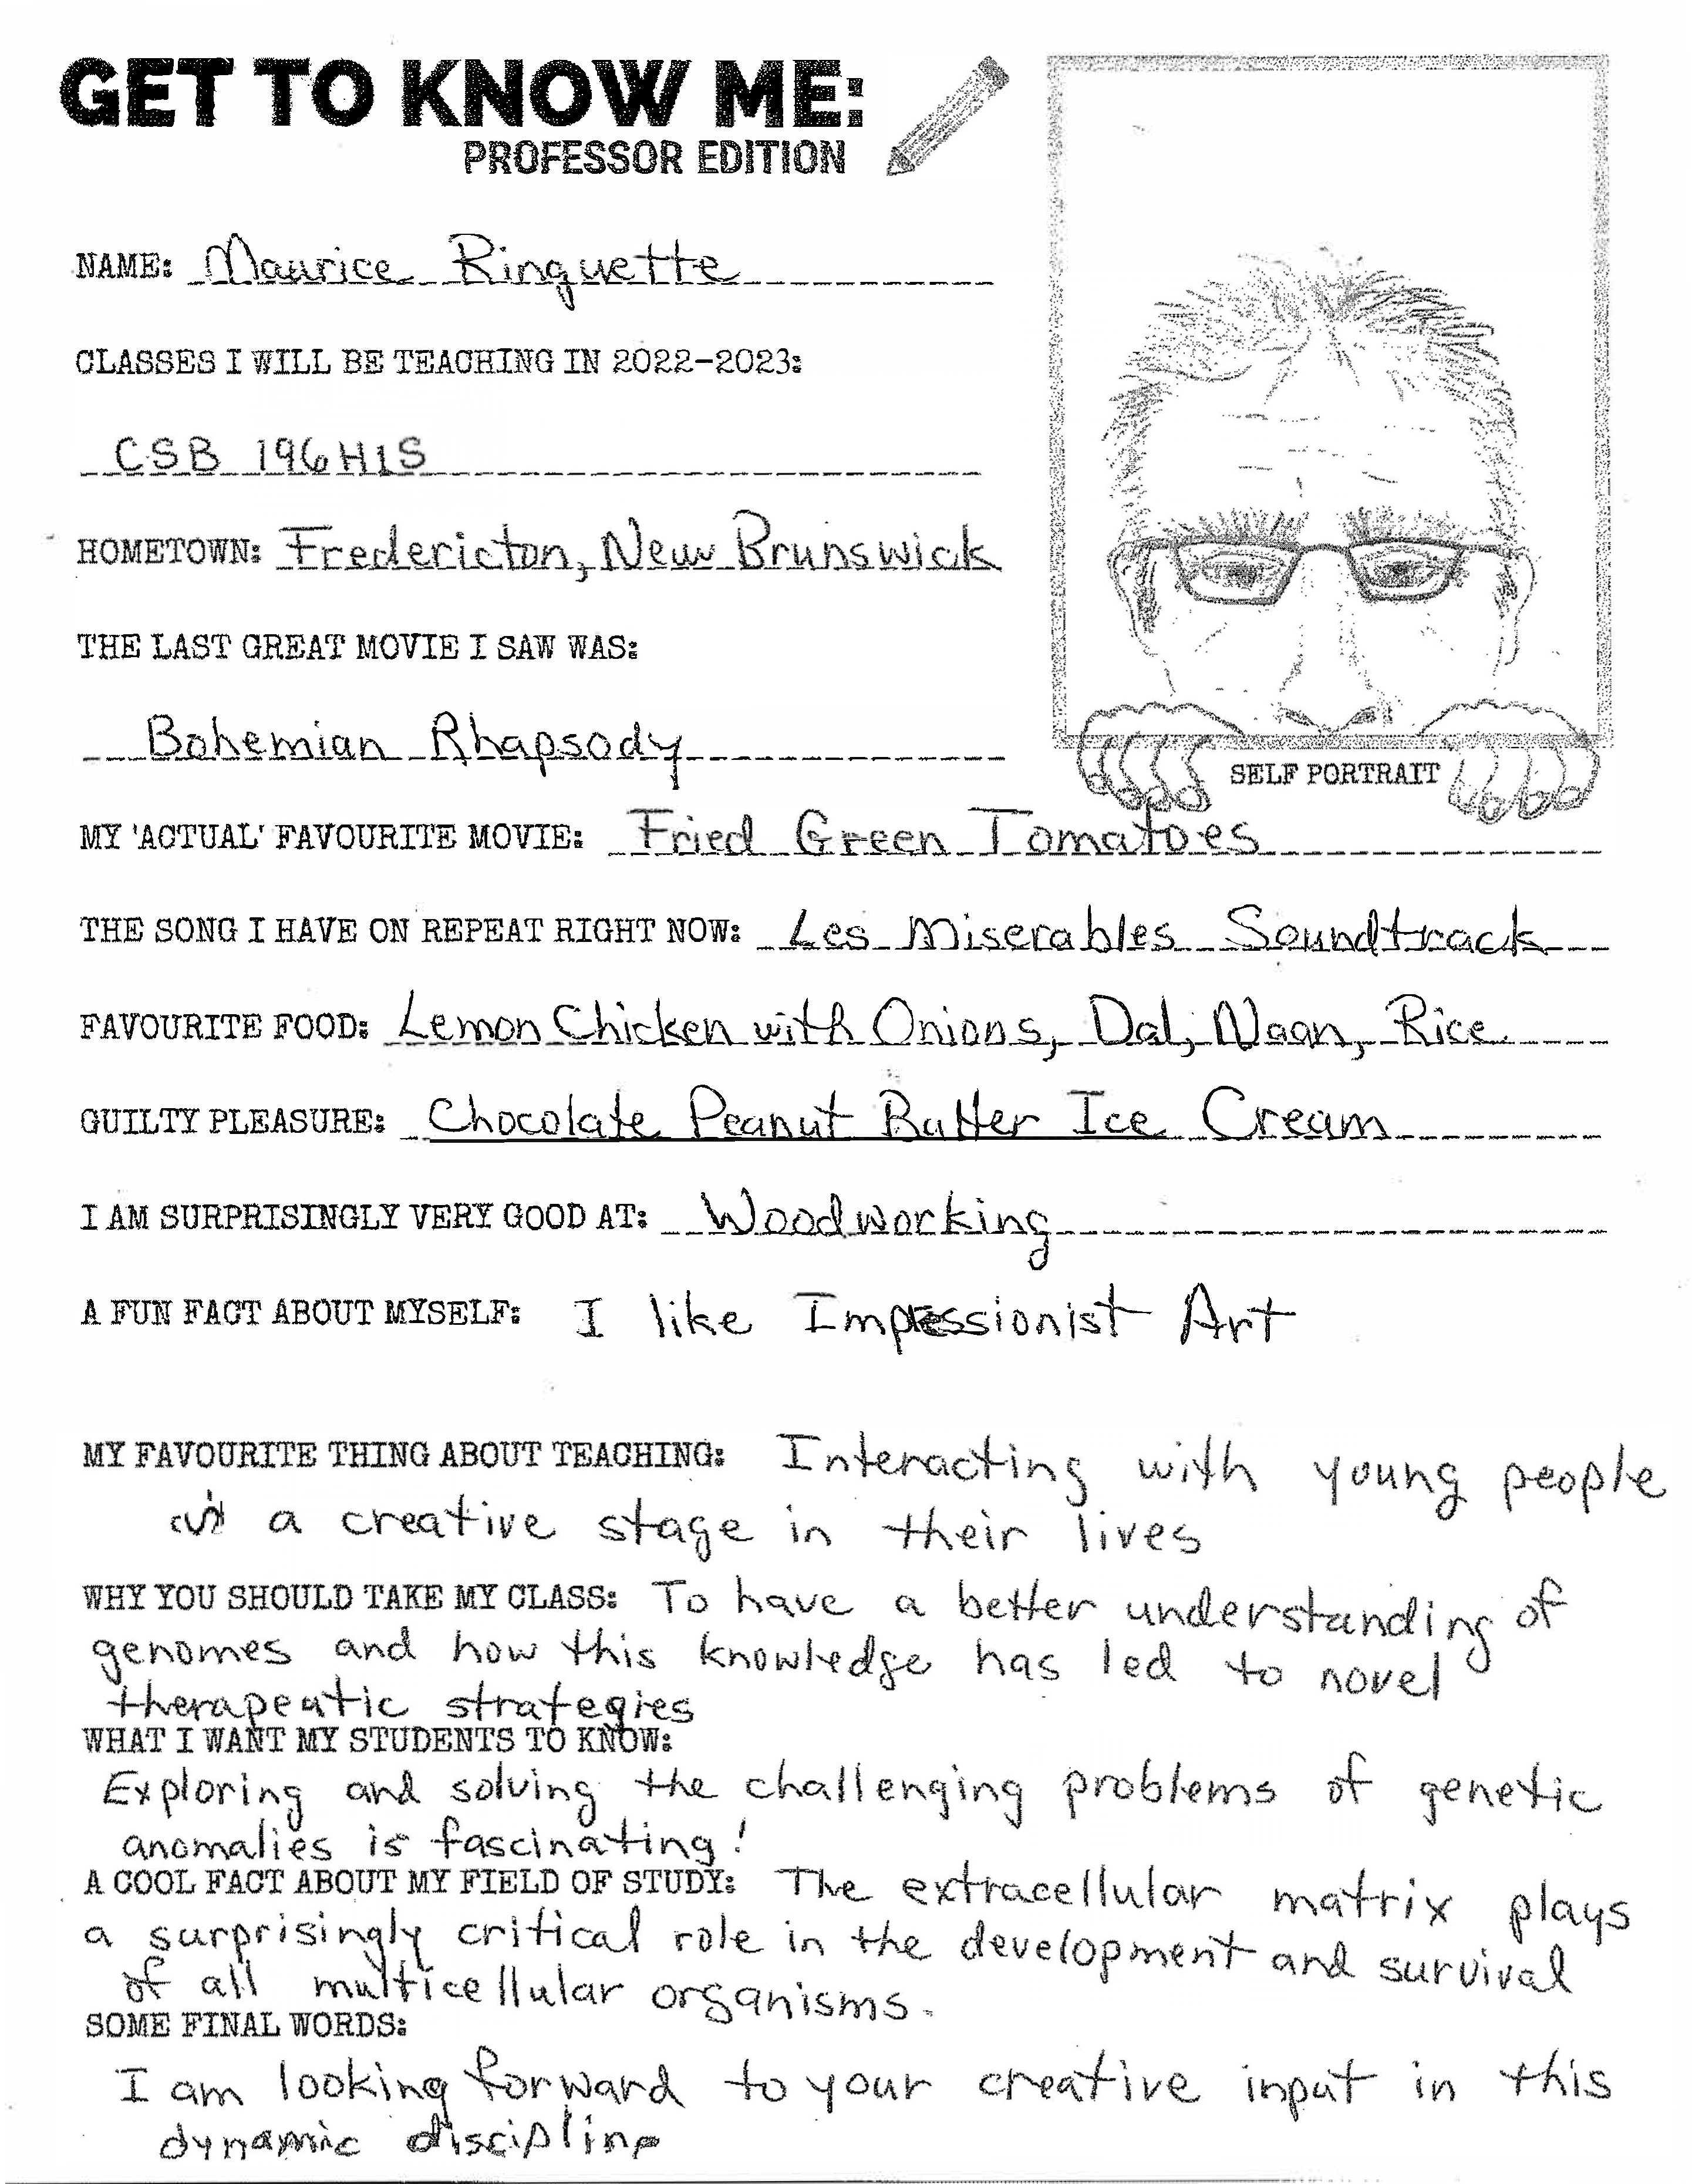 GET TO KNOW ME:
PROFESSOR EDITION
NAME: Maurice Ringuette
CLASSES I WILL BE TEACHING IN 2022-2023:
CSB 196H1S
HOMETOWN: Fredericton, New Brunswick
THE LAST GREAT MOVIE I SAW WAS:
Bohemian Rhapsody
SELF PORTRAIT
MY 'ACTUAL' FAVOURITE MOVIE: Fried Green Tomatoes
THE SONG I HAVE ON REPEAT RIGHT NOW: Les Miserables Soundtrack
FAVOURITE FOOD: Lemon Chicken with Onions, Dal, Naan, Rice
GUILTY PLEASURE: Chocolate Peanut Butter Ice Cream
I AM SURPRISINGLY VERY GOOD AT: Woodworking
A FUN FACT ABOUT MYSELF: I like Impressionist Art
MY FAVOURITE THING ABOUT TEACHING: Interacting with young people
a creative stage in their lives
WHY YOU SHOULD TAKE MY CLASS: To have a better understanding of
genomes and how this knowledge has led to novel
therapeutic strategies
WHAT I WANT MY STUDENTS TO KNOW:
Exploring and solving the challenging problems of genetic
anomalies is fascinating!
A COOL FACT ABOUT MY FIELD OF STUDY: The extracellular matrix plays
a surprisingly critical role in the development and survival
of all multicellular organisms.
SOME FINAL WORDS:
I am looking forward to your creative input in this
dynamic discipline